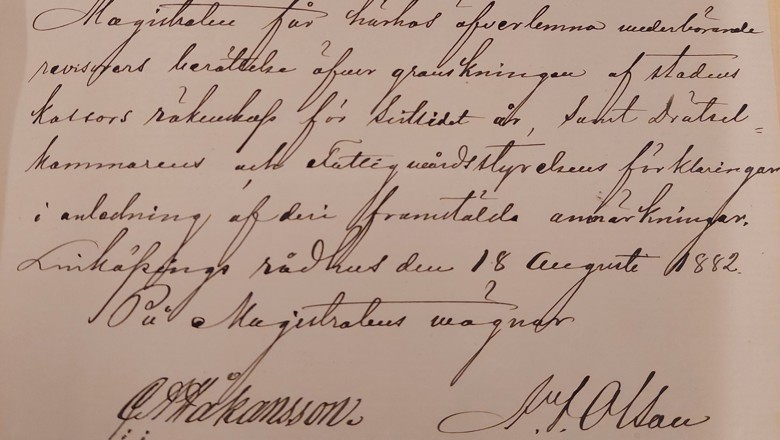 Magistraten får härhos öfverlemna vederbörande
revisorers berättelse öfver granskningen af stadens
kassors räkenskap för sistlidet år, samt Drätsel-
kammarens och Fattigvårdsstyrelsens förklaringar
i anledning af deri framstälda anmärkningar.
Linköpings rådhus den 18 Augusti 1882.
På Magistratens vägnar
Håkansson.
Olsson